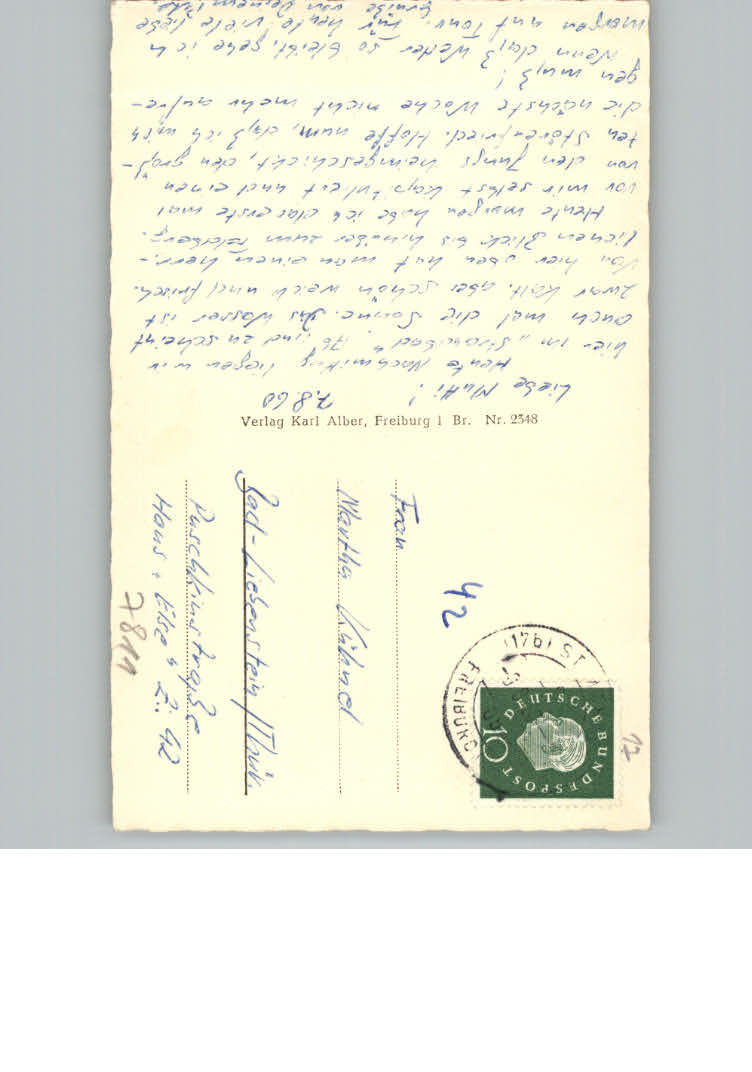 7.8.60
Liebe Mutti!
Heute Nachmittag liegen wir
hier im „Strandbad“ und zu scheint
auch mal die Sonne. Das Wasser ist
zwar kalt, aber schön weich und frisch.
Von hier oben hat man einen herr-
lichen Blick bis hinüber zum Feldberg.
Heute morgen habe ich das erste mal
vor mir selbst kapituliert und einen
von den Jungs heimgeschickt, den größ-
ten Störenfried. Hoffe nun, daß ich mich
die nächste Woche nicht mehr aufre-
gen muß!
Wenn das Wetter so bleibt, gehe ich
morgen auf Tour. Für heute viele liebe
Grüße von Deinem
Verlag Karl Alber, Freiburg i Br. Nr. 2348
Frau
Martha Kühnel
Bad-Liebenstein/Thür.
Puschkinstraße
Haus "Else" Z. 42
42
7811
12
(17b) ST
FREIBURG
DEUTSCHE BUNDESPOST
10